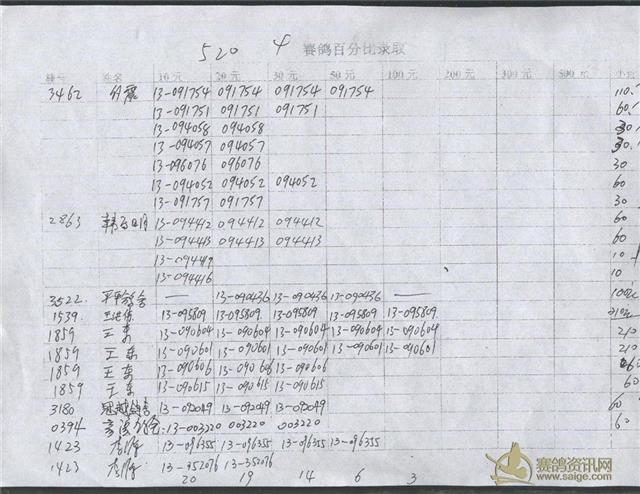 520 4 赛鸽百分比录取
棚号 姓名 10元 20元 30元 50元 100元 200元 300元 500元 小计
3462 13-091754 091754 091754 091754 110.
13-091751 091751 091751 60.
13-094058 094058 30.
13-094057 094057 30.
13-096076 096076 30
13-094052 094052 094052 60
13-091757 091757 30
2863 13-094412 094412 094412 60
13-094413 094413 094413 60
10
13-094416 10
3522. — 13-090436 13-090436 13-090436 —
1539. 13-095809 13-095809 13-095809 13-095809 13-095809
1859 王东 13-090604 13-090604 13-090604 13-090604 13-090604 210
1859 王东 13-090601 13-090601 13-090601 13-090601 13-090601 210
1859 王东 13-090606 13-090606 13-090606 60
1859 王东 13-090615 13-090615 13-090615 60
3180 13-092049 13-092049 13-092049 60
0394 13-003220 003220 003220 60
1423 13-096355 13-096355 13-096355 13-096355
1423 13-352076 13-352076
20 19 14 6 3
赛鸽资讯网
www.saige.com